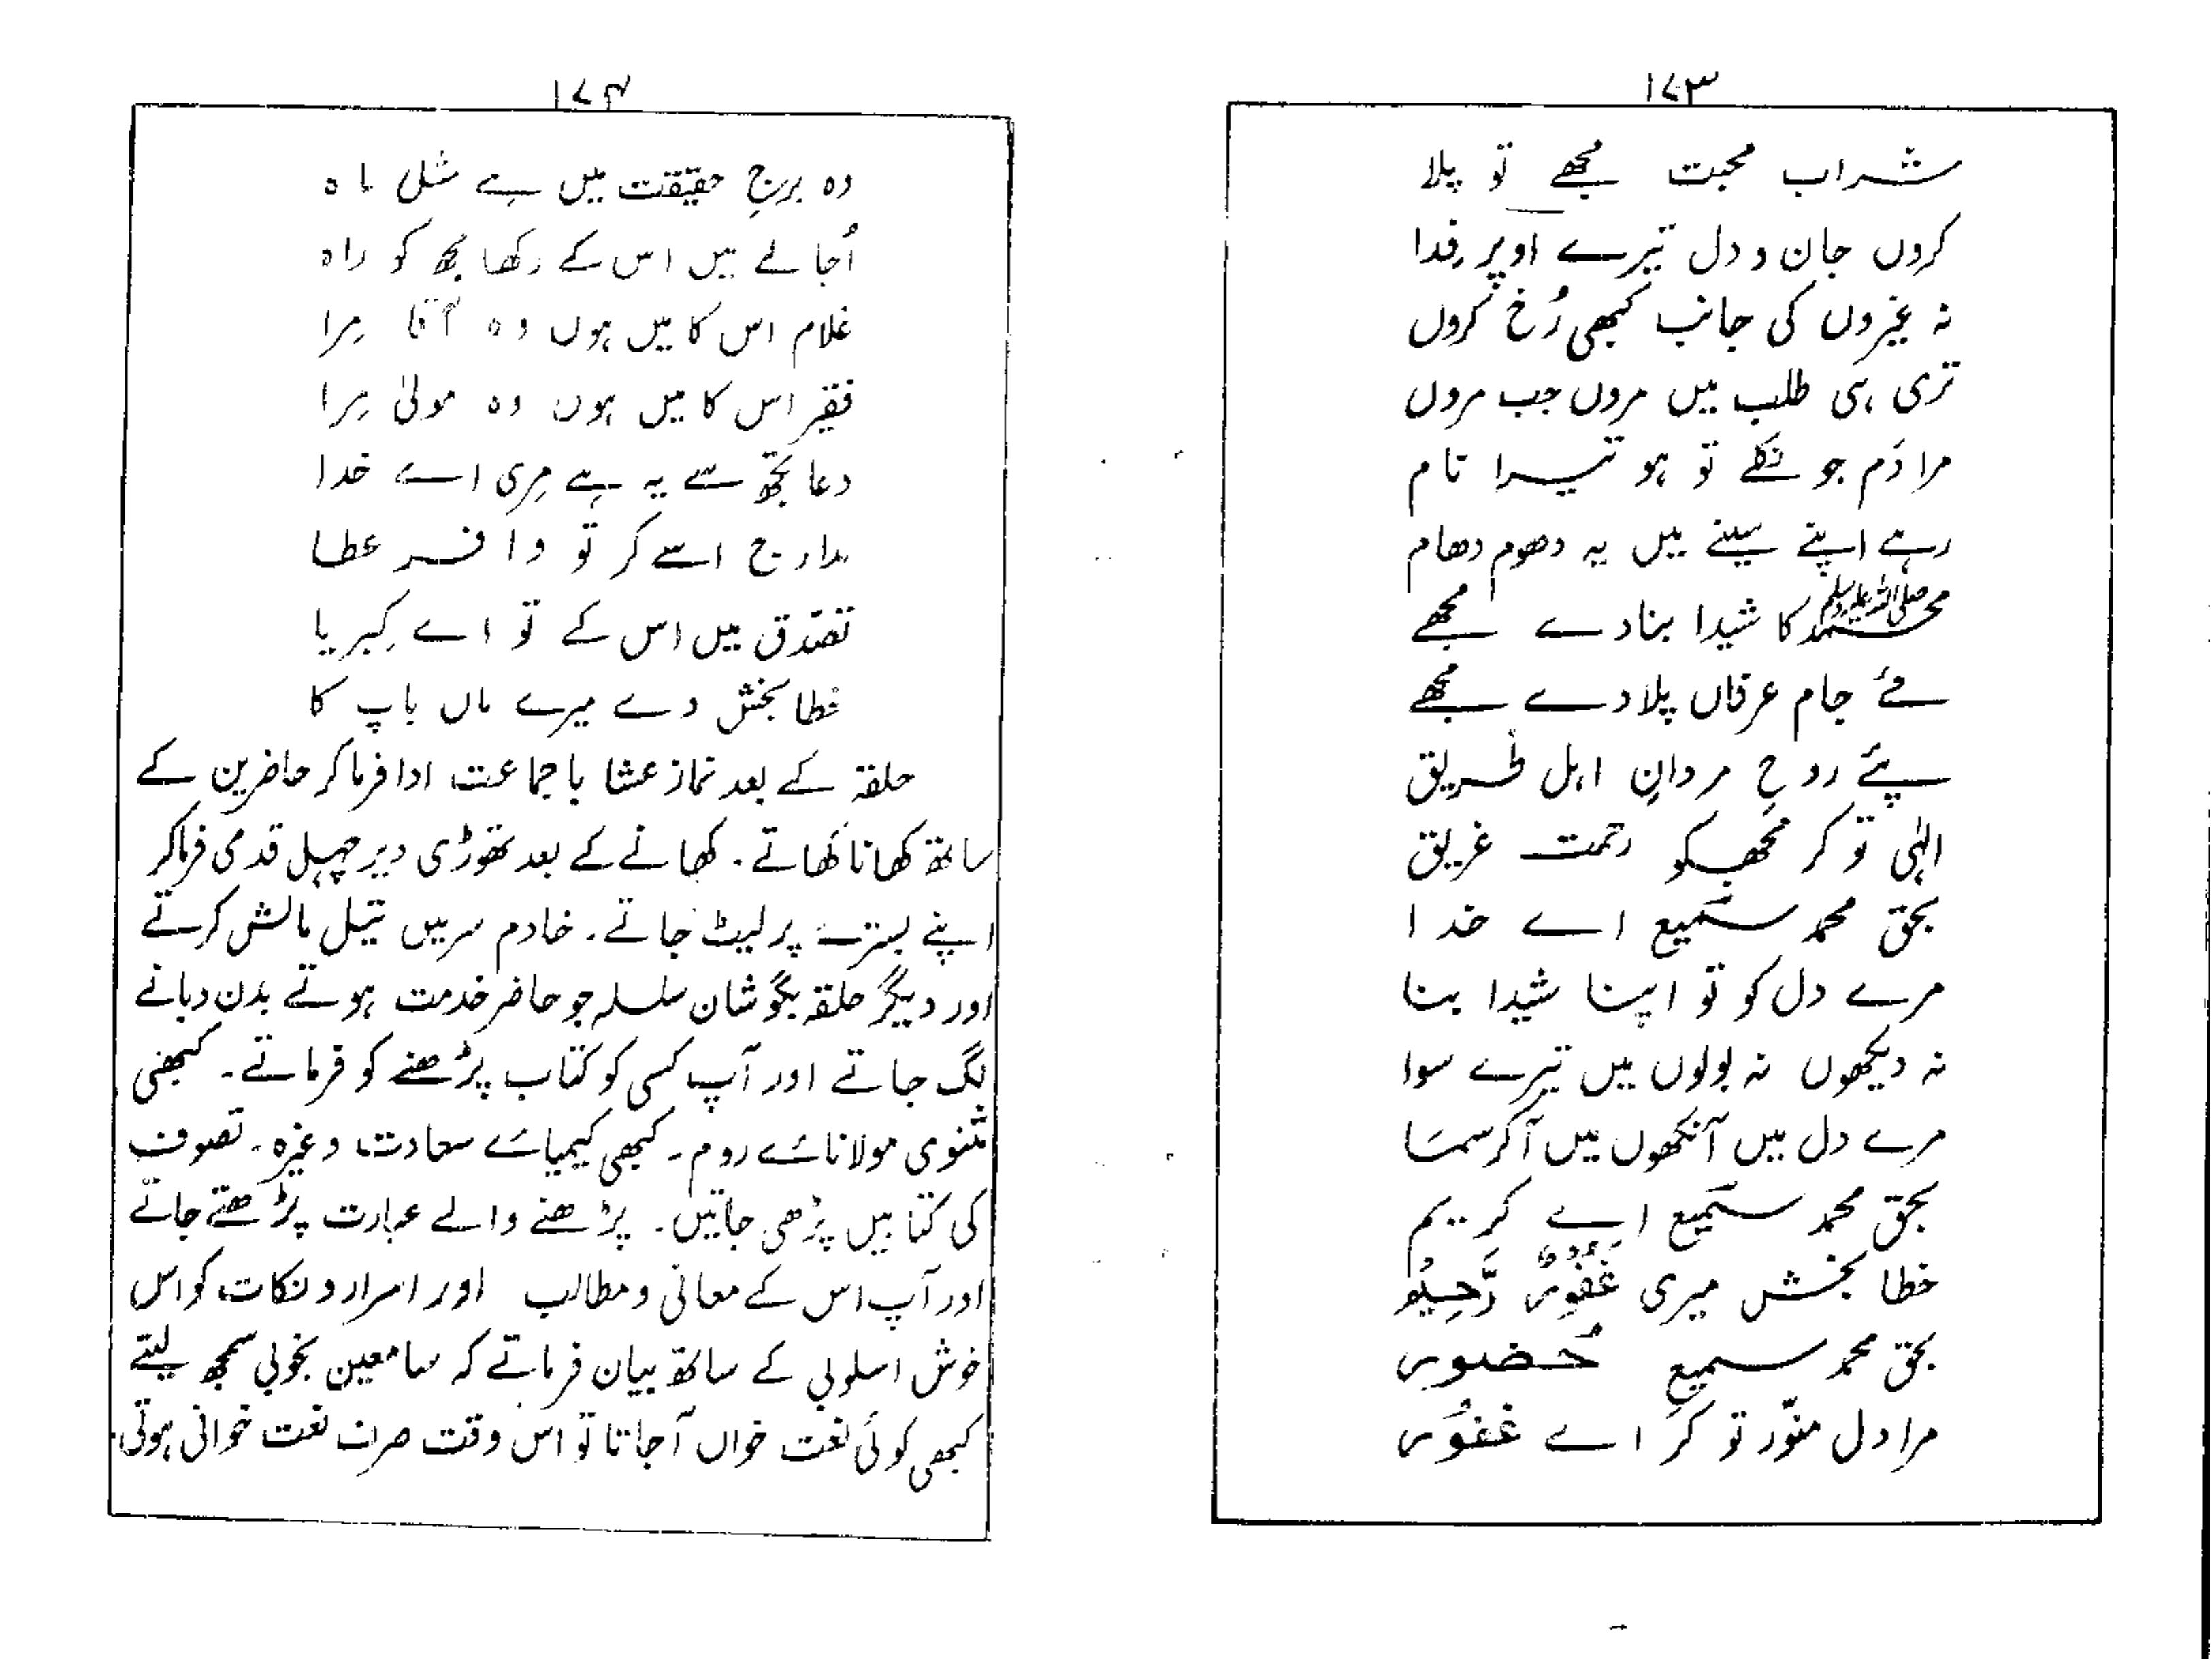 ۱۷۳
شراب محبت مجھے تو پلا
کروں جان و دل تیرے اوپر فِدا
نہ غیروں کی جانب کبھی رُخ کروں
تری ہی طلب میں مروں جب مروں
مرا دَم جو نکلے تو ہو تیرا نام
رہے اپنے سینے میں یہ دھوم دھام
محمد صلی اللہ علیہ وسلم کا شیدا بنا دے مجھے
مئے جام عرفاں پلا دے مجھے
پئے روحِ مردانِ اہل طریق
الٰہی تو کر مجھکو رحمت غریق
بحق محمد سَمیع اے خدا
مرے دل کو تو اپنا شیدا بنا
نہ دیکھوں نہ بولوں میں تیرے سوا
مرے دل میں آنکھوں میں آکر سما
بحق محمد سَمیع اے کریم
خطا بخش میری غَفُورٌ رَّحِیْم
بحق محمد سمیعِ حُضور
مرا دل منوّر تو کر اے غفُور
۱۷۴
وہ برجِ حقیقت میں ہے مثل ماہ
اُجالے میں اس کے دکھا مجھ کو راہ
غلام اس کا میں ہوں وہ آقا مِرا
فقیر اس کا میں ہوں وہ مولیٰ مِرا
دعا تجھ سے یہ ہے مِری اے خدا
مدارج اسے کر تو وافر عطا
تصدّق میں اس کے تو اے کِبریا
خطا بخش دے میرے ماں باپ کا
حلقہ کے بعد نماز عشا باجماعت ادا فرما کر حاضرین کے
ساتھ کھانا کھاتے۔ کھانے کے بعد تھوڑی دیر چہل قدمی فرماکر
اپنے بسترے پر لیٹ جاتے۔ خادم سر میں تیل مالش کرتے
اور دیگر حلقہ بگوشان سلسلہ جو حاضر خدمت ہوتے بدن دبانے
لگ جاتے اور آپ کسی کو کتاب پڑھنے کو فرماتے۔ کبھی
مثنوی مولانائے روم۔ کبھی کیمیائے سعادت وغیرہ۔ تصوف
کی کتابیں پڑھی جاتیں۔ پڑھنے والے عبارت پڑھتے جاتے
اور آپ اس کے معانی و مطالب اور اسرار و نکات کو اس
خوش اسلوبی کے ساتھ بیان فرماتے کہ سامعین بخوبی سمجھ لیتے
کبھی کوئی نعت خواں آجاتا تو اس وقت صرف نعت خوانی ہوتی۔